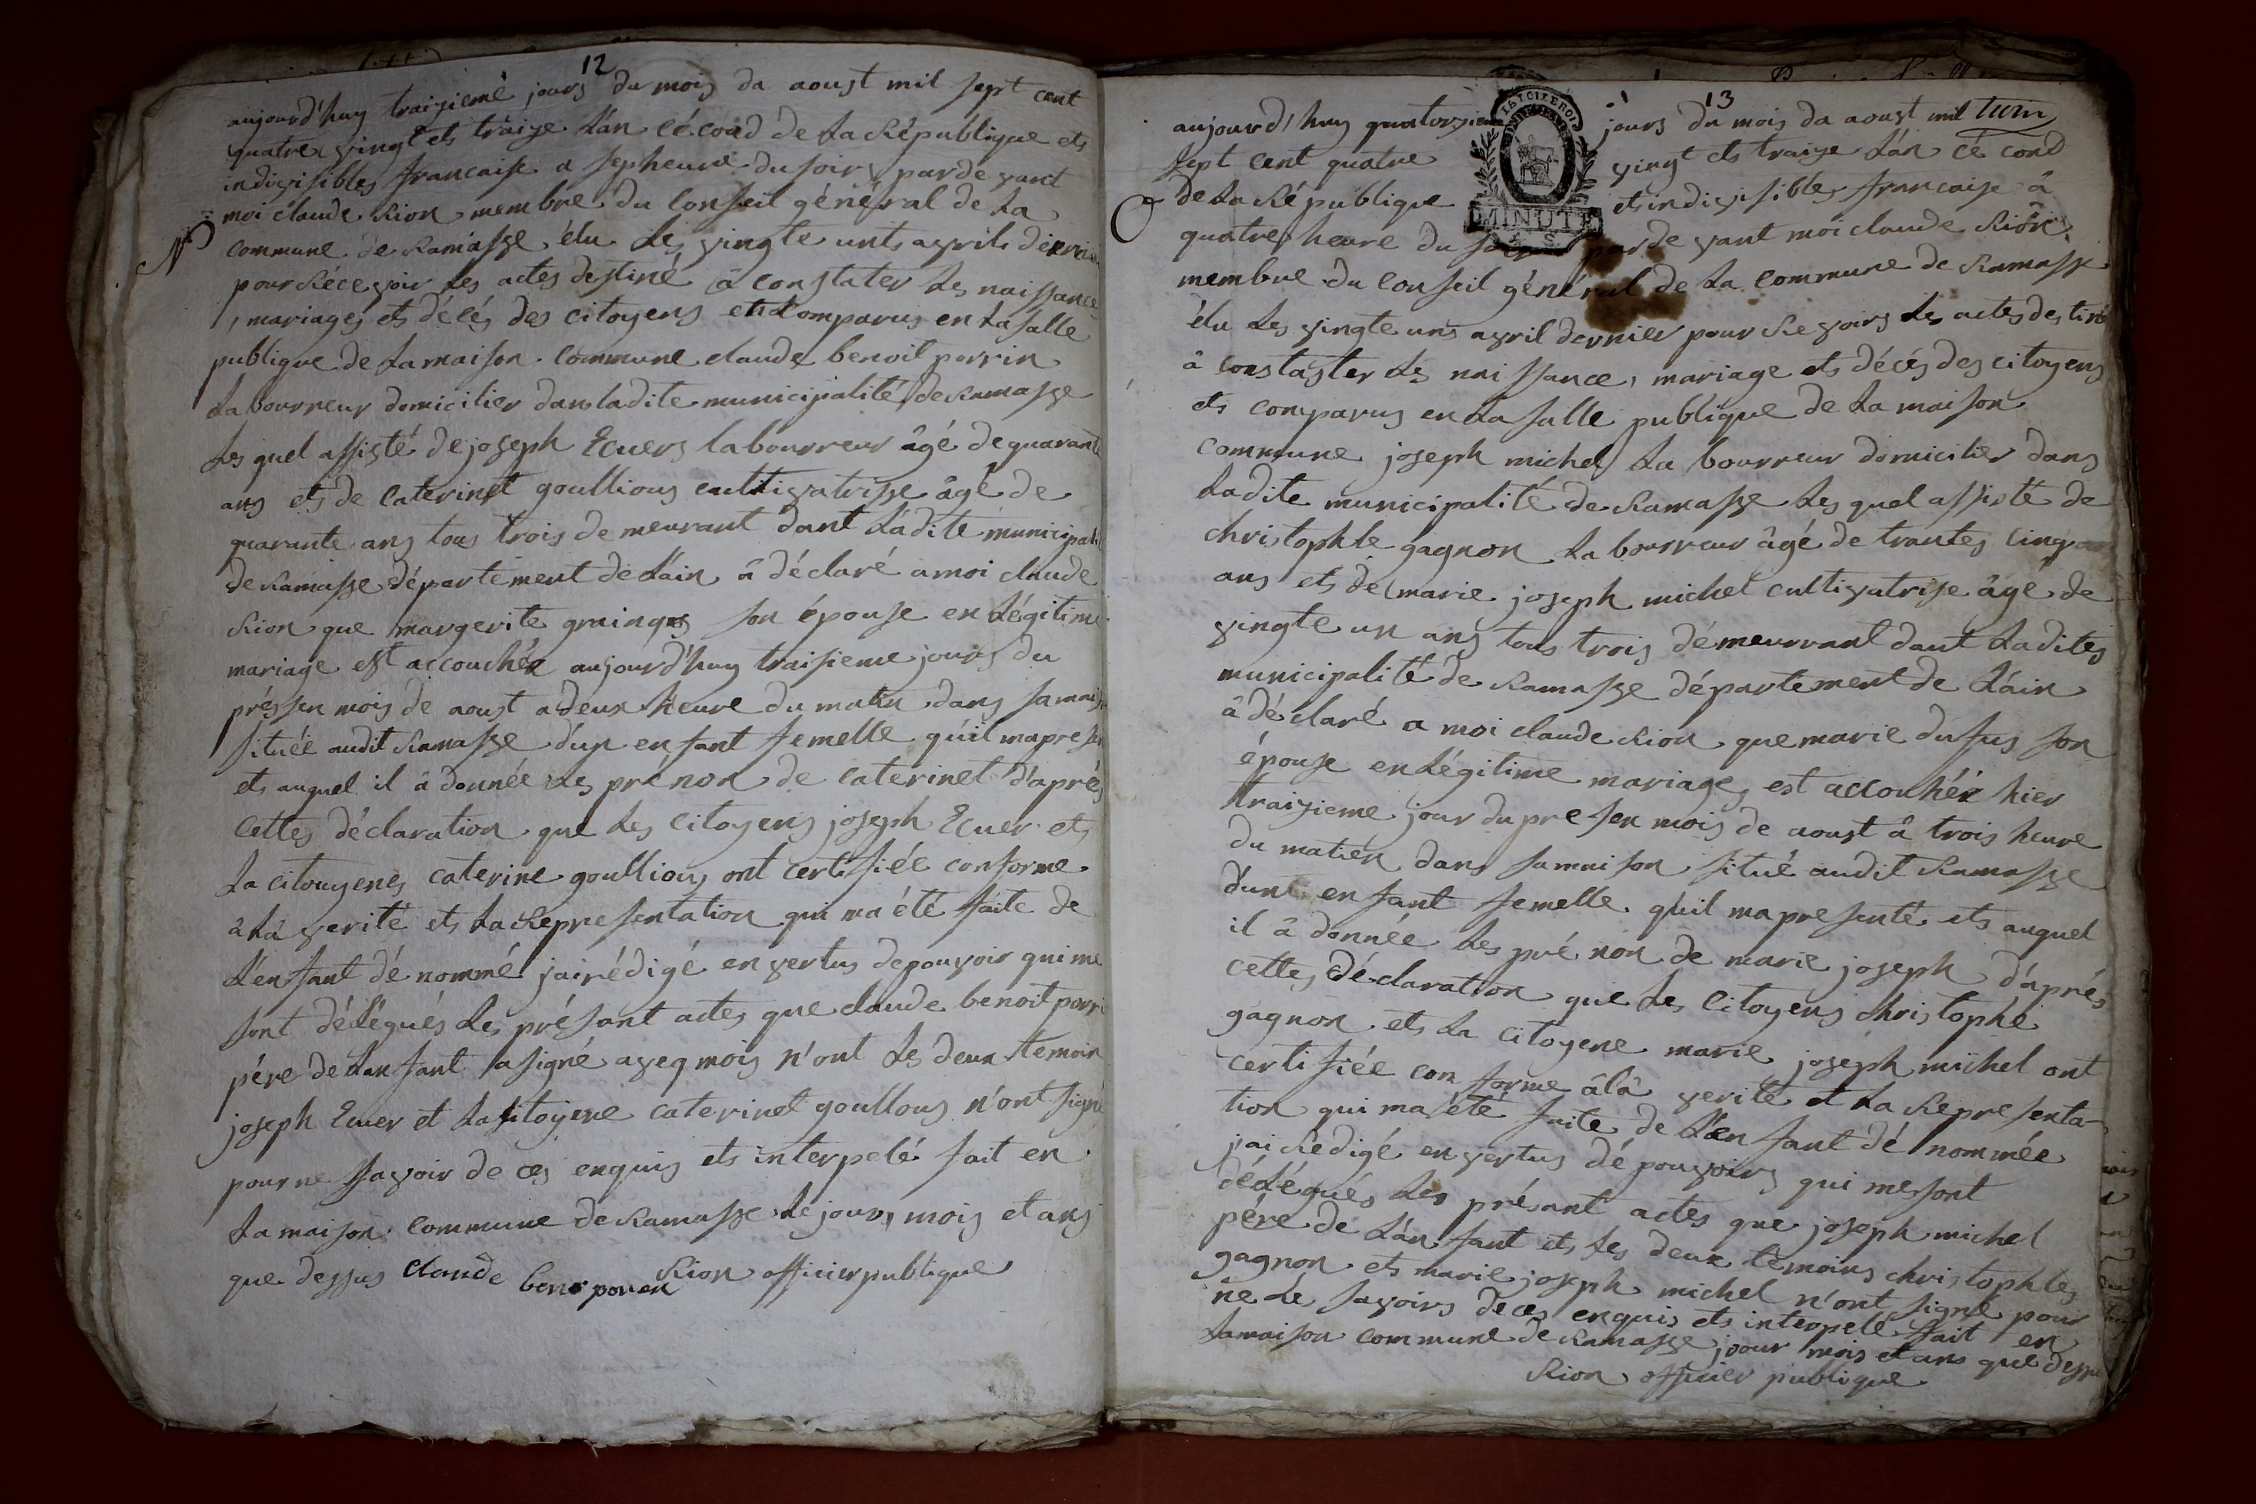 12
aujourd'huy traizieme jours du mois da aoust mil sept cent
quatre vingt ets traize L'an cécond de La République ets
indivisibles francaise a sepheure du soir parde vant
moi claude Rion membre du Conseil général de La
N
commune de Ramasse élu Les vingte unts avril dernier
pour Récevoir Les actes destiné â constater Les naissance
, mariages ets décés des citoyens ets Comparus en La salle
publique de Lamaison Commune claude benoit perrin
Labourreur domicilier dans ladite municipalité de Ramasse
Les quel assisté de joseph Ecuers labourreur âgé de quarante
ans ets de Caterinet goullious cultivatrisse âgé de
quarante ans tous trois de meurant dant Ladite municipali
de Ramasse département de L'ain â déclaré a moi claude
Rion que margerite grainges son épouse en Légitime
mariage est accouchée aujourd'huy traisieme jours du
présen mois de aoust a deux heure du matin dans samais
située audit Ramasse d'un enfant femelle qu'il mapresen
ets auquel il â donnée Les prénon de Caterinet d'aprés
Cettes déclaration que Les Citoyens joseph Ecuer ets
La citouyenes caterine goullious ont certifiée conforme
â La verité ets La Représentation qui ma été faite de
L'enfant dénommé jairédigé en vertus depouvoir qui me
sont délégués Les présant actes que claude benoit perri
pére de Lanfant asigné aveq mois n'ont Les deux temoin
joseph Ecuer et La sitoyene caterinet goullous n'ont signé
pour ne savoir de ces enquis ets interpelé fait en
La maison commune de Ramasse Le jours mois et ans
que dessus claude beno poren Rion officier publique
13
aujourd'huy quatorzieme jours du mois da aoust mil
sept cent quatre vingt ets traize L'an cé cond
de La République ets indivisibles francaise â
quatres heure du soir parde vant moi claude Rion
membre du Conseil général de La commune de Ramasse
élu Les vingte uns avril dernier pour Revoirs Les actes destiné
â constaster Les naissance, mariage ets décés des citoyens
ets comparus en La salle publique de La maison
commune joseph michel La bourreur domicilier dans
Ladite municipalité de Ramasse Les quel assisté de
christophle gagnon Labourreur âgé de trantes cinq
ans ets de marie joseph michel cultivatrise âgé de
vingte un ans tous trois démeurrant dant Ladites
municipalité de Ramasse département de L'ain
â déclaré a moi claude Rion que marie dufus son
épouse en Légitime mariage est accouhée hier
traizieme jour du presen mois de aoust â trois heure
du matien dans samaison situé audit Ramasse
d'unt enfant femelle qu'il mapresenté ets auquel
il â donnée Les pré non de marie joseph d'aprés
cettes déclaration que Les Citoyens christophe
gagnon ets La Citoyene marie joseph michel ont
certifiée conforme âlâ verité et La Représenta-
tion qui ma été faite de L'enfant dénommée
jai Redigé en vertus dé pouvoirs qui messont
délégués Les présant actes que joseph michel
pére de L'an fant ets Les deux témoins christophles
gagnon ets marie joseph michel n'ont signé pour
ne Le savoirs de ces enquis ets interpelé fait en
Lamaison commune de Ramasse joour mois et ans que dessu
Rion officier publique
MINUTE